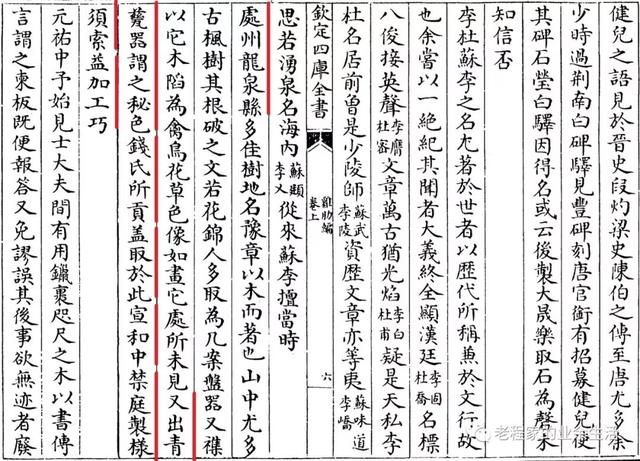 健兒之語見於晉史段灼梁史陳伯之傳至唐尤多余
少時過荆南白碑驛見豐碑刻唐官銜有招募健兒使
其碑石瑩白驛因得名或云後製大晟樂取石為磬未
知信否
李杜蘇李之名尤著於世者以歷代所稱兼於文行故
也余當以一絶紀其聞者大義終全顯漢廷李固杜喬名標
八俊接英聲李膺杜密文章萬古猶光焰李白杜甫疑是天私李
杜名居前曾是少陵師蘇武李陵資歷文章亦等夷蘇味道李嶠
欽定四庫全書
雞肋編
卷上
六
思若湧泉名海内蘇頲李乂從來蘇李擅當時
處州龍泉縣多佳樹地名豫章以木而著也山中尤多
古楓樹其根破之文若花錦人多取為几案盤器又襍
以它木陷為禽鳥花草色像如畫它處所未見又出青
甆器謂之秘色錢氏所貢盖取於此宣和中禁庭製様
須索益加工巧
元祐中予始見士大夫間有用鑞裹咫尺之木以書傳
言謂之柬板既便報答又免謬誤其後事欲無迹者廢
老程家的业余生活